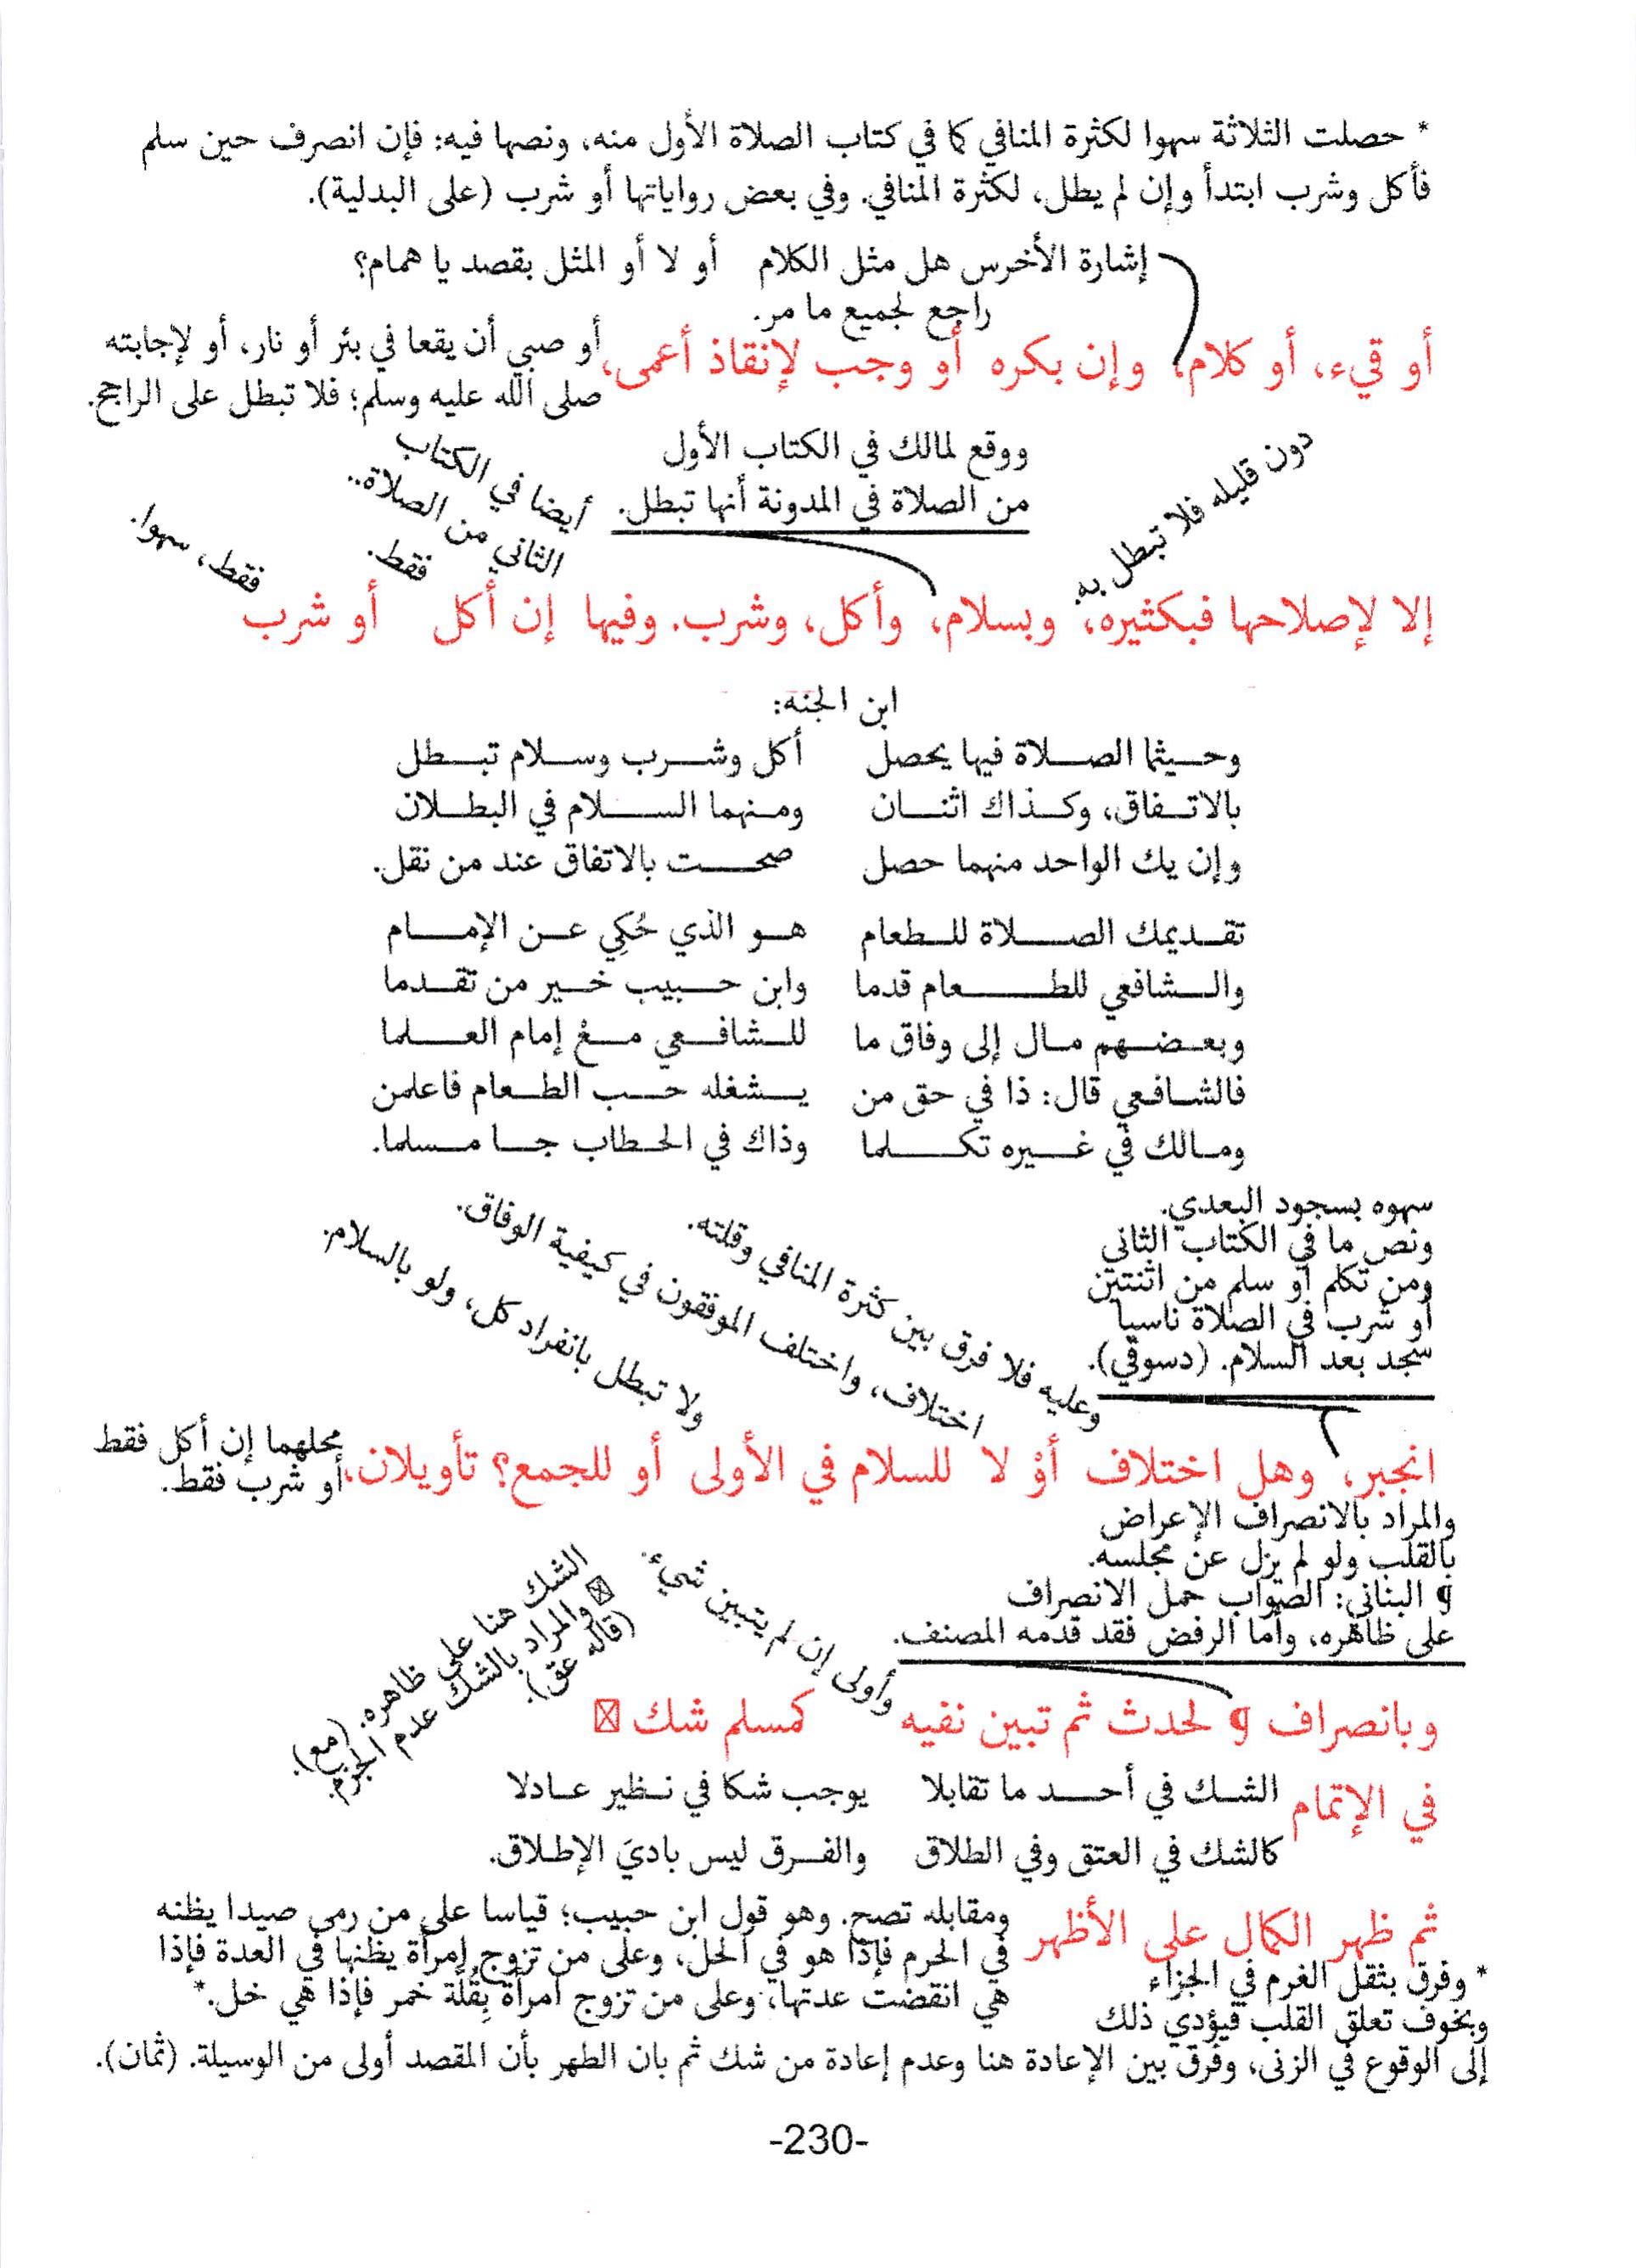 * حصلت الثلاثة سهوا لكثرة المنافي كما في كتاب الصلاة الأول منه، ونصها فيه: فإن انصرف حين سلم
فأكل وشرب ابتدأ وإن لم يطل، لكثرة المنافي. وفي بعض رواياتها أو شرب (على البدلية).
إشارة الأخرس هل مثل الكلام أو لا أو المثل بقصد يا همام؟
راجع لجميع ما مر.
أو قيء، أو كلام، وإن بكره أو وجب لإنقاذ أعمى،
أو صبي أن يقعا في بئر أو نار، أو لإجابته
صلى الله عليه وسلم؛ فلا تبطل على الراجح.
دون قليله فلا تبطل به.
ووقع لمالك في الكتاب الأول
من الصلاة في المدونة أنها تبطل.
أيضا في الكتاب
الثاني من الصلاة..
فقط.
فقط، سهوا.
إلا لإصلاحها فبكثيره، وبسلام، وأكل، وشرب. وفيها إن أكل أو شرب
ابن الجنه:
وحيثما الصلاة فيها يحصل أكل وشرب وسلام تبطل
بالاتفاق، وكذاك اثنان ومنهما السلام في البطلان
وإن يك الواحد منهما حصل صحت بالاتفاق عند من نقل.
تقديمك الصلاة للطعام هو الذي حُكِي عن الإمام
والشافعي للطعام قدما وابن حبيب خير من تقدما
وبعضهم مال إلى وفاق ما للشافعي مغ إمام العلما
فالشافعي قال: ذا في حق من يشغله حب الطعام فاعلمن
ومالك في غيره تكلما وذاك في الحطاب جا مسلما.
سهوه بسجود البعدي.
ونص ما في الكتاب الثاني
ومن تكلم أو سلم من اثنتين
أو شرب في الصلاة ناسيا
سجد بعد السلام. (دسوقي).
وعليه فلا فرق بين كثرة المنافي وقلته.
اختلاف، واختلف الموفقون في كيفية الوفاق.
ولا تبطل بانفراد كل، ولو بالسلام.
انجبر، وهل اختلاف أوْ لا للسلام في الأولى أو للجمع؟ تأويلان،
محلهما إن أكل فقط
أو شرب فقط.
والمراد بالانصراف الإعراض
بالقلب ولو لم يزل عن مجلسه.
¶ البناني: الصواب حمل الانصراف
على ظاهره، وأما الرفض فقد قدمه المصنف.
وأولى إن لم يتبين شيء.
الشك هنا على ظاهره. (مع).
☒ والمراد بالشك عدم الجزم.
(قاله عق).
وبانصراف ¶ لحدث ثم تبين نفيه كمسلم شك ☒
في الإتمام
الشك في أحد ما تقابلا يوجب شكا في نظير عادلا
كالشك في العتق وفي الطلاق والفرق ليس باديَ الإطلاق.
ثم ظهر الكمال على الأظهر
ومقابله تصح. وهو قول ابن حبيب؛ قياسا على من رمى صيدا يظنه
في الحرم فإذا هو في الحل، وعلى من تزوج امرأة يظنها في العدة فإذا
هي انقضت عدتها، وعلى من تزوج امرأة بِقُلَّة خمر فإذا هي خل.*
* وفرق بثقل الغرم في الجزاء
وبخوف تعلق القلب فيؤدي ذلك
إلى الوقوع في الزنى، وفرق بين الإعادة هنا وعدم إعادة من شك ثم بان الطهر بأن المقصد أولى من الوسيلة. (ثمان).
-230-